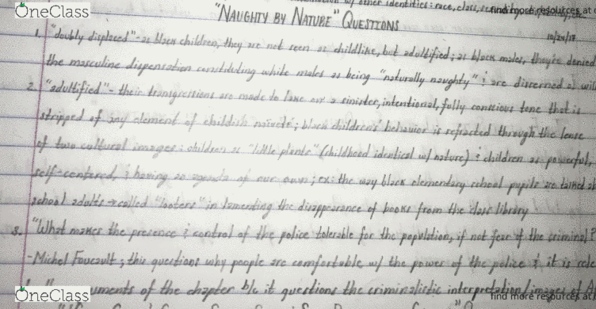 of other identities: race, class, find more resources at
OneClass
"NAUGHTY BY NATURE" QUESTIONS
1. "doubly displaced" - as black children, they are not seen as childlike, but adultified; as black males, they're denied
the masculine dispensation constituting white males as being "naturally naughty" & are discerned as
2. "adultified" - their transgressions are made to take on a sinister, intentional, fully conscious tone that is
stripped of any element of childish naïveté; black children's behavior is refracted through the lense
of two cultural images: children as "little plants" (childhood identical w/ nature) & children as powerful,
self-centered, & having an agenda of our own; ex: the way black elementary school pupils are talked
school adults → called "looters" in lamenting the disappearance of books from the class library
3. "What makes the presence & control of the police tolerable for the population, if not fear of the criminal?"
-Michel Foucault; this questions why people are comfortable w/ the power of the police & it is
OneClass
of the chapter b/c it questions the criminalistic interpretation/images of
find more resources at